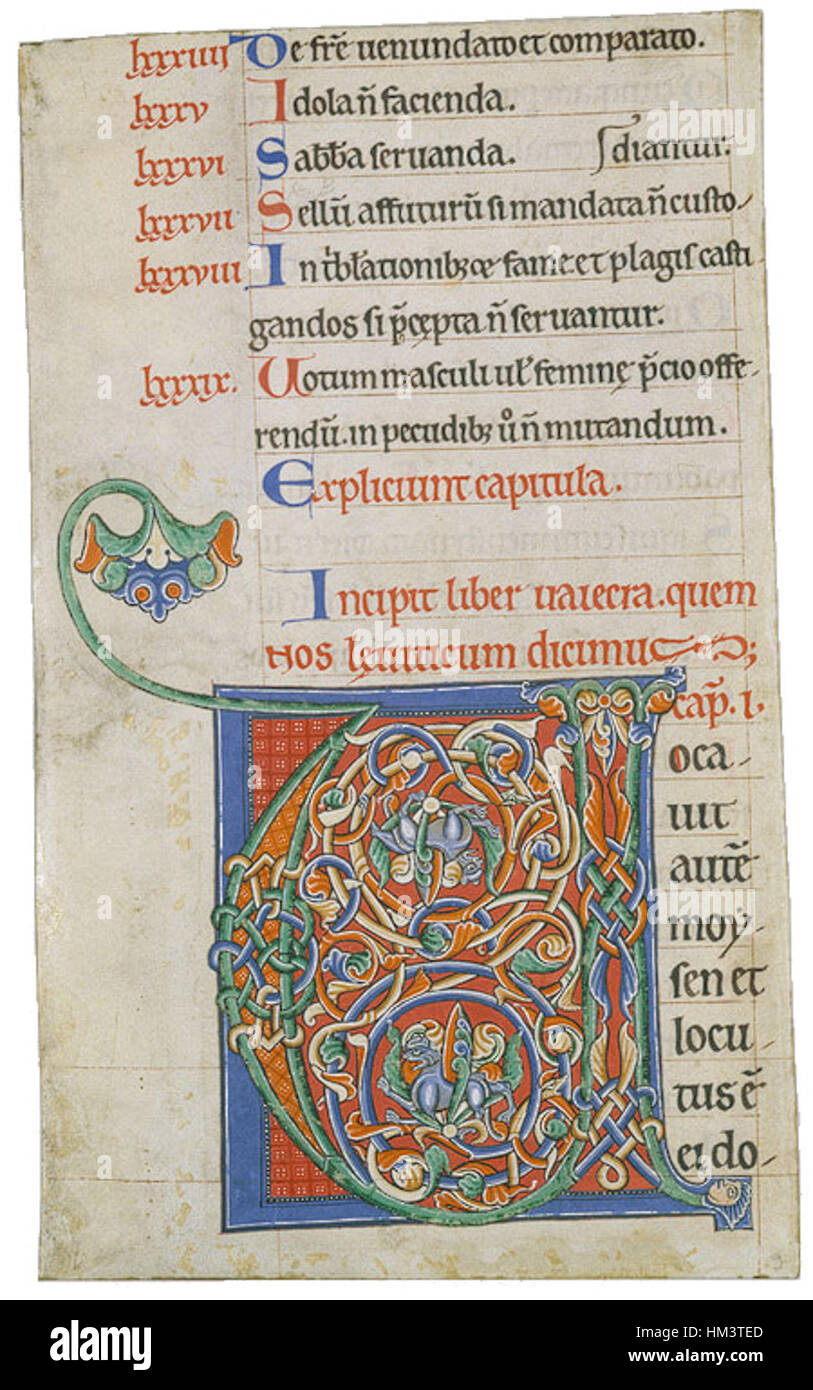 lxxxiiij De fr̄e uenundato et comparato.
lxxxv Idola n̄ facienda.
lxxxvi Sabb̄a seruanda. ſdiantur.
lxxxvii Sellū affuturū si mandata n̄ custo-
lxxxviii In t'bl̄ationibꝫ fame et plagis casti
gandos si p̄cepta n̄ seruantur.
lxxxix. Uotum masculi ul' feminę p̄cio offe-
rendū. in pecudibꝫ ů n̄ mutandum.
Expliciunt capitula.
Incipit liber uaiecra. quem
nos leuiticum dicimus;
cap̄. i.
Uoca-
uit
autē
moy-
sen et
locu-
tus ē
ei do-
alamy
alamy stock photo
HM3TED
www.alamy.com